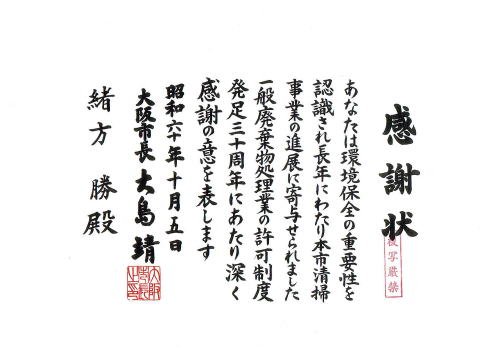 感謝状
複写厳禁
あなたは環境保全の重要性を
認識され長年にわたり本市清掃
事業の進展に寄与せられました
一般廃棄物処理業の許可制度
発足三十周年にあたり深く
感謝の意を表します
昭和六十年十月五日
大阪市長 大島靖
大阪市長之印
緒方 勝殿